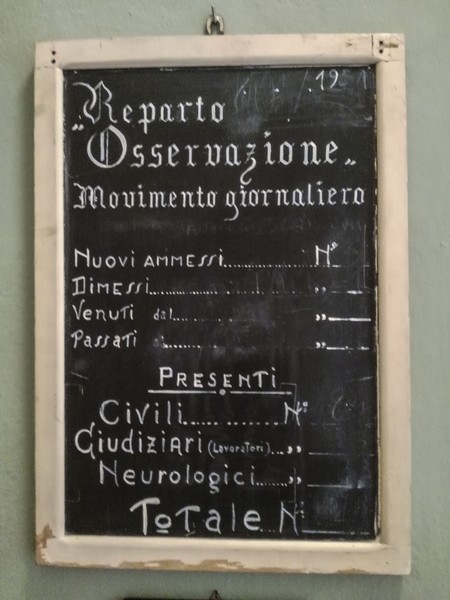 19
„Reparto
Osservazione„
Movimento giornaliero
Nuovi ammessi............... N°
Dimessi........................ „
Venuti dal.................... „
Passati ..................... „
Presenti
Civili............ N°
Giudiziari (Lavoratori)... „
Neurologici....... „
Totale N°